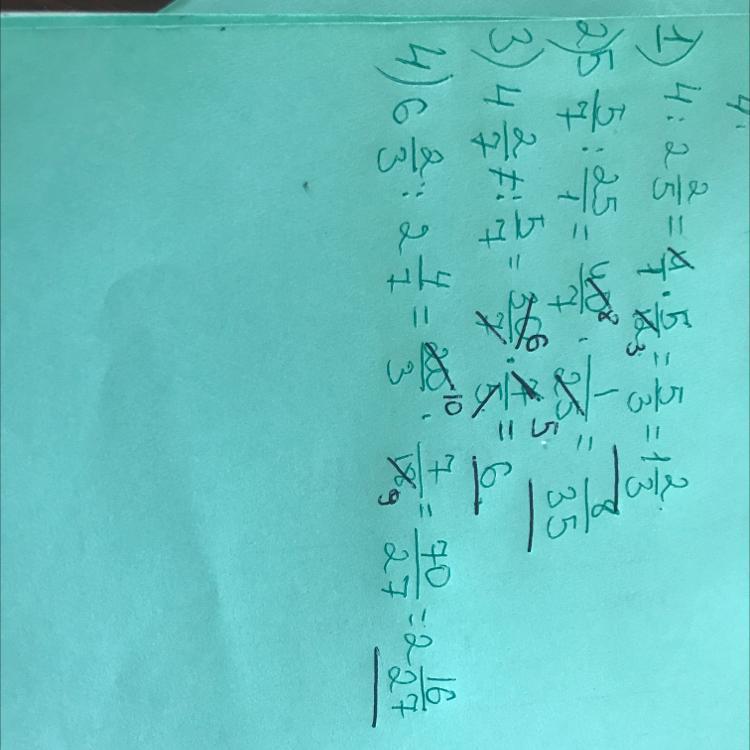 4:
1) 4 : 2 2/5 = 4/1 · 5/12 3 = 5/3 = 1 2/3
2) 5 5/7 : 25/1 = 40 8/7 · 1/25 5 = 8/35
3) 4 2/7 : 5/7 = 30 6/7 · 7/5 = 6
4) 6 2/3 : 2 4/7 = 20 10/3 · 7/18 9 = 70/27 = 2 16/27